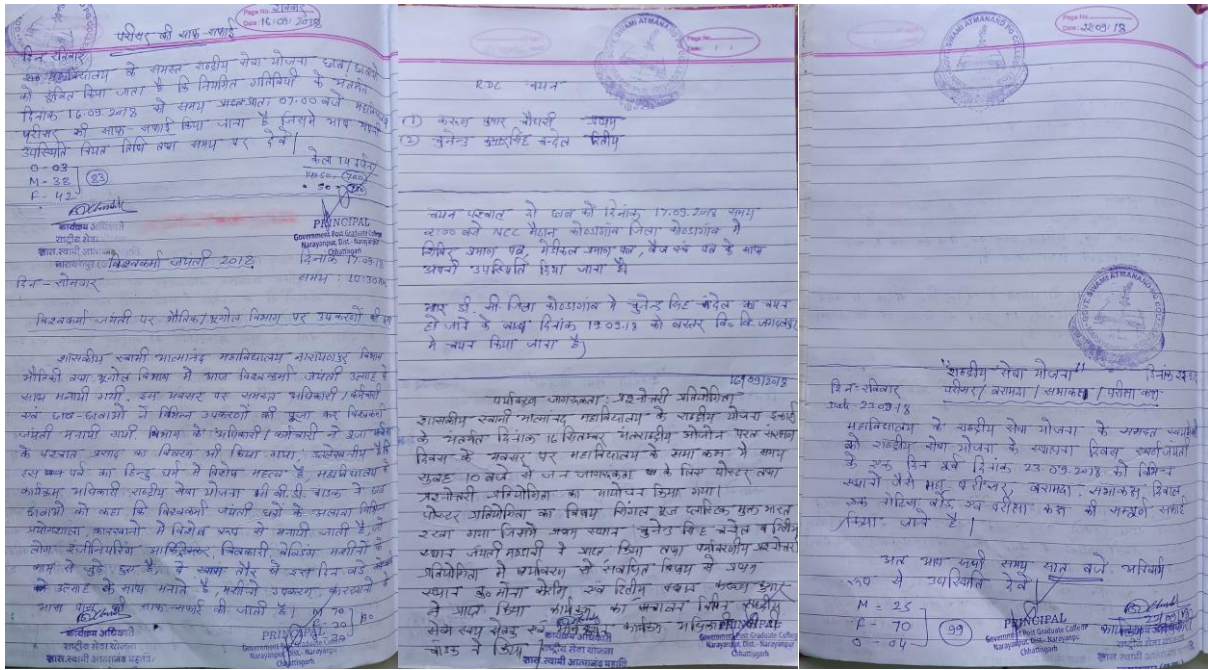 Page No. रविवार
Date 16/09/2018
परीसर की साफ-सफाई
दिन रविवार
महाविद्यालय के समस्त राष्ट्रीय सेवा योजना छात्र/छात्राओं
को सूचित किया जाता है कि नियमित गतिविधी के अंतर्गत
दिनांक 16.09.2018 को समय प्रातः 07:00 बजे महाविद्यालय
परीसर की साफ-सफाई किया जाना है जिसमे आप अपनी
उपस्थिति नियत तिथि तथा समय पर देवें।
O - 03
M - 38
F - 42
83
PRINCIPAL
Government Post Graduate College
Narayanpur, Dist.- Narayanpur
Chhattisgarh
कार्यक्रम अधिकारी
राष्ट्रीय सेवा
शास.स्वामी
विश्वकर्मा जयंती 2018
दिनांक 17.09.18
दिन - सोमवार
समय : 10:30
विश्वकर्मा जयंती पर भौतिक/भूगोल विभाग पर उपकरणों की
शासकीय स्वामी आत्मानंद महाविद्यालय नारायणपुर विभाग
भौतिकी तथा भूगोल विभाग में आज विश्वकर्मा जयंती उत्साह के
साथ मनायी गयी। इस अवसर पर समस्त अधिकारी/कर्मचारी
एवं छात्र-छात्राओं ने विभिन्न उपकरणों की पूजा कर विश्वकर्मा
जयंती मनायी गयी विभाग के अधिकारी/कर्मचारी ने पूजा
के पश्चात प्रसाद का वितरण भी किया गया, उल्लेखनीय है कि
इस पर्व का हिन्दु धर्म में विशेष महत्व है, महाविद्यालय के
कार्यक्रम अधिकारी राष्ट्रीय सेवा योजना श्री बी.डी. चाडक ने छात्र
छात्राओं को कहा कि विश्वकर्मा जयंती घरों के अलावा विभिन्न
प्रयोगशाला, कारखानों में विशेष रूप से मनायी जाती है जो
लोग इंजीनियरिंग चित्रकारी, वेल्डिंग मशीनों के
काम से जुड़े हुए है, वे खास तौर से इस दिन बड़े
उत्साह के साथ मनाते है, मशीनों उपकरण, कारखानों के
आस पास की साफ-सफाई की जाती है।
कार्यक्रम अधिकारी
राष्ट्रीय सेवा योजना
शास.स्वामी आत्मानंद महावि.
GOVT. SWAMI ATMANAND PG COLLEGE
RDC चयन
(1) कुमार चौधरी प्रथम
(2) चुनेन्द्र कुमार सिंह चंदेल द्वितीय
चयन पश्चात दो छात्र को दिनांक 17.09.2018 समय
बजे NCC मैदान कोण्डागांव जिला कोण्डागांव में
शिविर प्रमाण पत्र, मेडीकल प्रमाण पत्र, बैज एवं पत्र के साथ
अपनी उपस्थिति दिया जाना है।
आर डी. सी. जिला कोण्डागांव मे चुनेन्द्र सिंह चंदेल का चयन
हो जाने के बाद दिनांक 19.09.18 को बस्तर वि० वि. जगदलपुर
मे चयन किया जाना है।
16/09/2018
पर्यावरण जागरूकता : प्रश्नोत्तरी प्रतियोगिता
शासकीय स्वामी आत्मानंद महाविद्यालय के राष्ट्रीय योजना इकाई
के अंतर्गत दिनांक 16 सितम्बर अंतराष्ट्रीय ओजोन परत संरक्षण
दिवस के अवसर पर महाविद्यालय के सभा कक्ष में समय
सुबह 10 बजे से जन जागरूकता के लिए पोस्टर तथा
प्रश्नोत्तरी प्रतियोगिता का आयोजन किया गया।
पोस्टर प्रतियोगिता का विषय सिंगल यूज प्लास्टिक मुक्त भारत
रखा गया जिसमे प्रथम स्थान चुनेन्द्र सिंह चंदेल व द्वितीय
स्थान जयंती मण्डावी ने प्राप्त किया तथा पर्यावरणीय प्रश्नोत्तरी
प्रतियोगिता में पर्यावरण से संबंधित विषय से प्रथम
स्थान कु० मोना एवं द्वितीय स्थान कुमार
ने प्राप्त किया कार्यक्रम का संचालन राष्ट्रीय
सेवा स्वयं सेवक एवं कार्यक्रम अधिकारी
चाडक ने किया
PRINCIPAL
Government Post Graduate College
Narayanpur, Dist.- Narayanpur
Chhattisgarh
कार्यक्रम अधिकारी
राष्ट्रीय सेवा योजना
शास.स्वामी आत्मानंद महावि
Page No.
Date 22.09.18
GOVT. SWAMI ATMANAND PG COLLEGE
GOVT. SWAMI ATMANAND PG COLLEGE
"राष्ट्रीय सेवा योजना"
दिन - रविवार परीसर/बरामदा/सभाकक्ष/परीक्षा कक्ष
Date - 23.09.18
महाविद्यालय के राष्ट्रीय सेवा योजना के समस्त
को राष्ट्रीय सेवा योजना के स्थापना दिवस स्वर्ण जयंती
के एक दिन पूर्व दिनांक 23.09.2018 को विभिन्न
स्थानों जैसे परीसर, बरामदा, सभाकक्ष दिवाल
एवं नोटिस बोर्ड, एवं परीक्षा कक्ष की सम्पूर्ण सफाई
किया जाने है।
अतः आप सभी समय सात बजे अनिवार्य
रूप से उपस्थिति देवें।
M = 25
F - 70
O - 04
99
PRINCIPAL
Government Post Graduate College
Narayanpur, Dist.- Narayanpur
Chhattisgarh
कार्यक्रम अधिकारी
राष्ट्रीय सेवा योजना
शास.स्वामी आत्मानंद